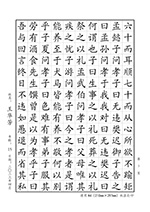 六十而耳順七十而從心所欲不踰矩
孟懿子問孝子曰無違樊遲御子告之
曰孟孫問孝於我我對曰無違樊遲曰
何謂也子曰生事之以禮死葬之以禮
祭之以禮孟武伯問孝子曰父母唯其
疾之憂子游問孝子曰今之孝者是謂
能養至於犬馬皆能有養不敬何以別
乎子夏問孝子曰色難有事弟子服其
勞有酒食先生饌曾是以為孝乎子曰
吾與回言終日不違如愚退而省其私